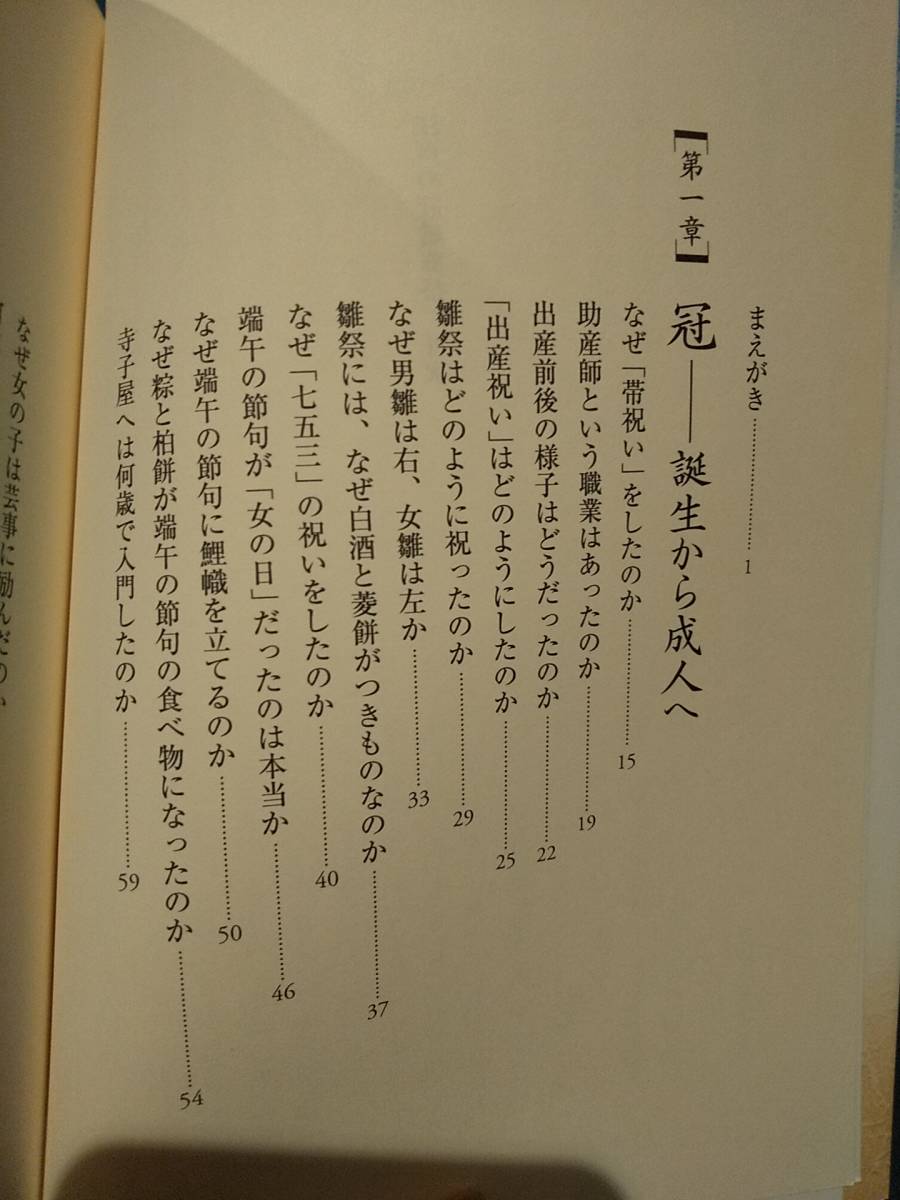 まえがき…………………1
【第一章】冠――誕生から成人へ
なぜ「帯祝い」をしたのか…………………15
助産師という職業はあったのか…………………19
出産前後の様子はどうだったのか…………………22
「出産祝い」はどのようにしたのか…………………25
雛祭はどのように祝ったのか…………………29
なぜ男雛は右、女雛は左か…………………33
雛祭には、なぜ白酒と菱餅がつきものなのか…………………37
なぜ「七五三」の祝いをしたのか…………………40
端午の節句が「女の日」だったのは本当か…………………46
なぜ端午の節句に鯉幟を立てるのか…………………50
なぜ粽と柏餅が端午の節句の食べ物になったのか…………………54
寺子屋へは何歳で入門したのか…………………59
なぜ女の子は芸事に励んだのか